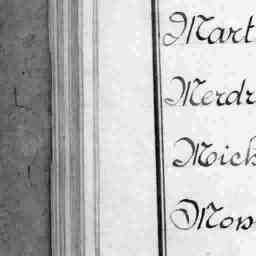 Mart
Merdr
Mick
Mos